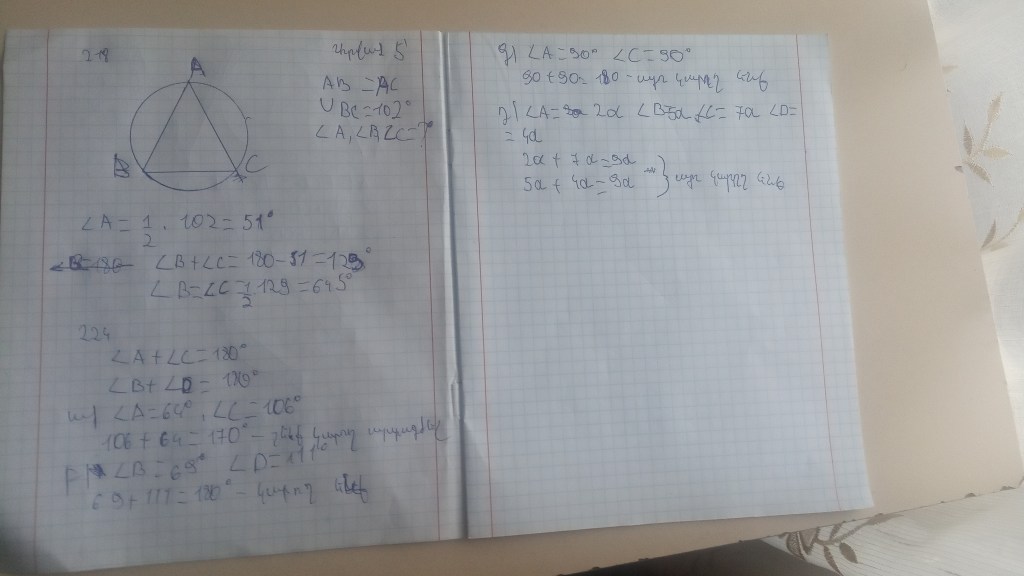 218
A
B
C
AB = AC
∪BC=102°
∠A, ∠B ∠C=?
∠A= 1/2 · 102 = 51°
∠B+∠C= 180-51=129°
∠B=∠C=1/2 129=64,5°
224
∠A+∠C=180°
∠B+∠D= 180°
ա) ∠A=64°, ∠C=106°
106+64=170° - չենք կարող արտագծել
բ) ∠B=69° ∠D=111°
69+111=180° - կարող ենք
գ) ∠A=90° ∠C=90°
90+90=180-այո կարող ենք
∠A= 2a ∠B=5a ∠C= 7a ∠D=
= 4a
2a + 7a=9a
5a + 4a=9a } այո կարող ենք